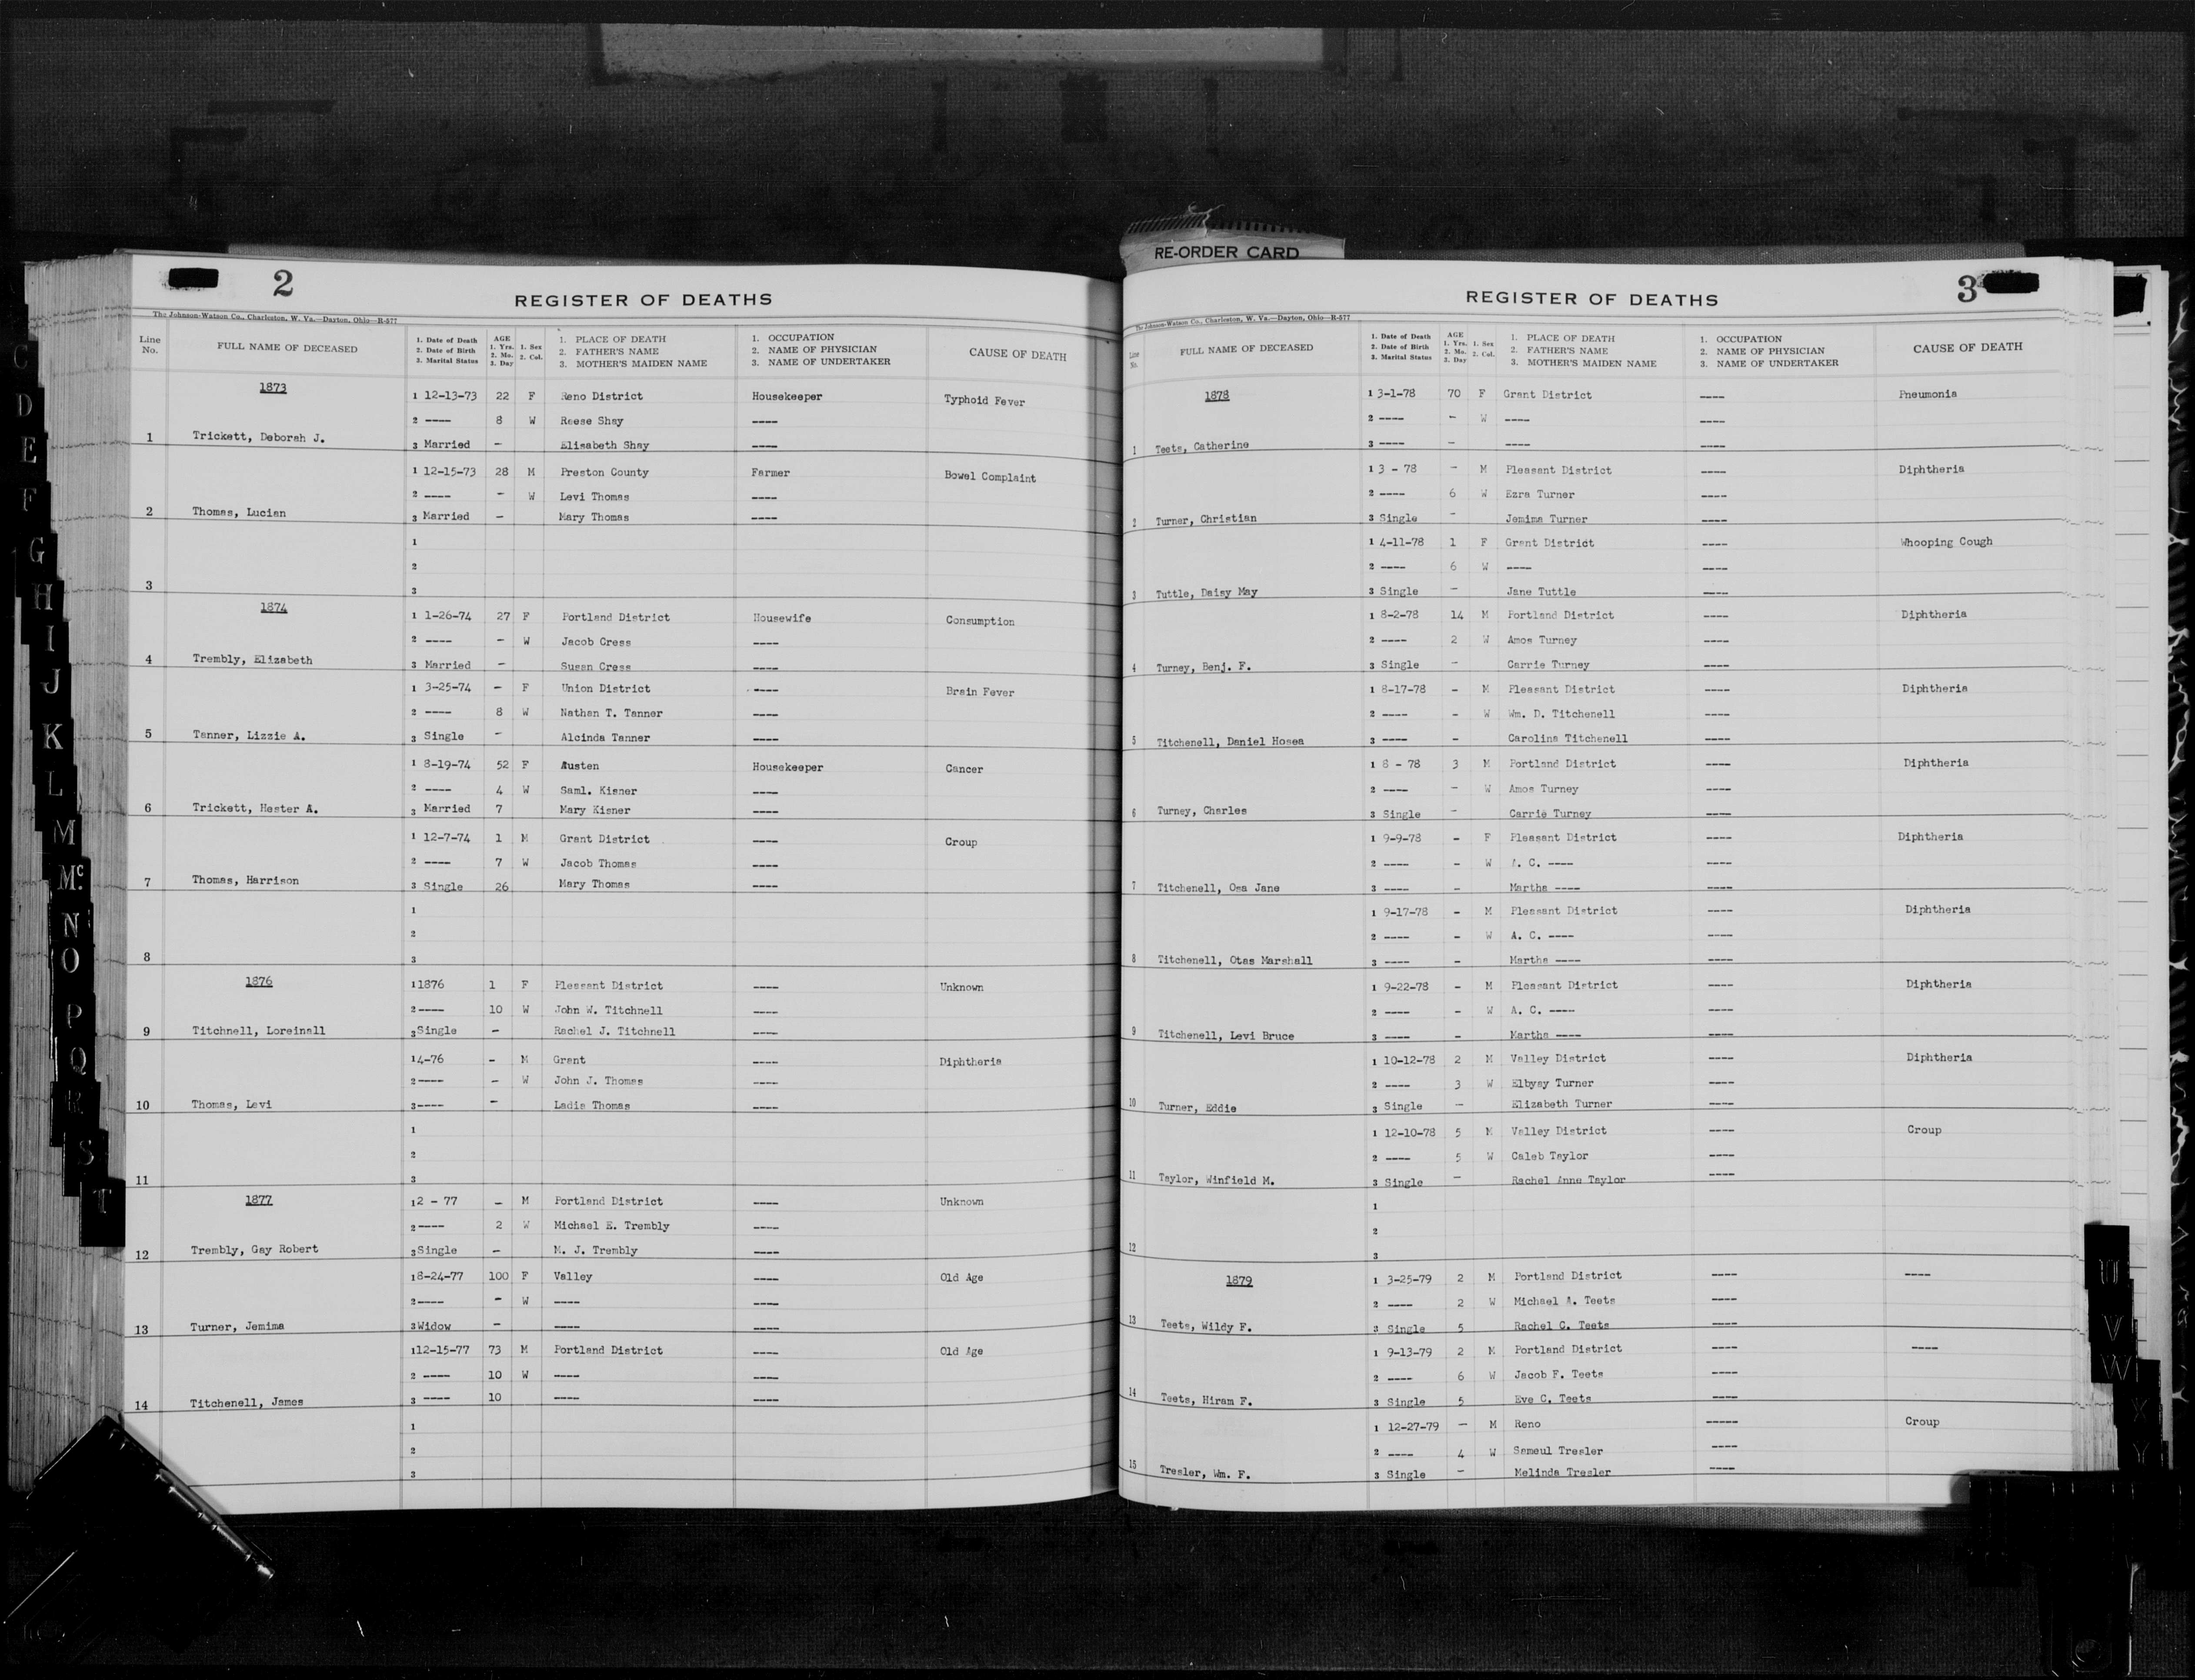 RE-ORDER CARD
2
REGISTER OF DEATHS
The Johnson-Watson Co., Charleston, W. Va.—Dayton, Ohio—R-577
Line No. FULL NAME OF DECEASED 1. Date of Death 2. Date of Birth 3. Marital Status AGE 1. Yrs. 2. Mo. 3. Day 1. Sex 2. Col. 1. PLACE OF DEATH 2. FATHER'S NAME 3. MOTHER'S MAIDEN NAME 1. OCCUPATION 2. NAME OF PHYSICIAN 3. NAME OF UNDERTAKER CAUSE OF DEATH
1873
1 12-13-73 22 F Reno District Housekeeper Typhoid Fever
2 ---- 8 W Reese Shay ----
1 Trickett, Deborah J. 3 Married - Elisabeth Shay ----
1 12-15-73 28 M Preston County Farmer Bowel Complaint
2 ---- - W Levi Thomas ----
2 Thomas, Lucian 3 Married - Mary Thomas ----
1
2
3 3
1874
1 1-26-74 27 F Portland District Housewife Consumption
2 ---- - W Jacob Cress ----
4 Trembly, Elizabeth 3 Married - Susan Cress ----
1 3-25-74 - F Union District ---- Brain Fever
2 ---- 8 W Nathan T. Tanner ----
5 Tanner, Lizzie A. 3 Single - Alcinda Tanner ----
1 8-19-74 52 F Austen Housekeeper Cancer
2 ---- 4 W Saml. Kisner ----
6 Trickett, Hester A. 3 Married 7 Mary Kisner ----
1 12-7-74 1 M Grant District ---- Croup
2 ---- 7 W Jacob Thomas ----
7 Thomas, Harrison 3 Single 26 Mary Thomas ----
1
2
8 3
1876
1 1876 1 F Pleasant District ---- Unknown
2 ---- 10 W John W. Titchnell ----
9 Titchnell, Loreinall 3 Single - Rachel J. Titchnell ----
1 4-76 - M Grant ---- Diphtheria
2 ---- - W John J. Thomas ----
10 Thomas, Levi 3 ---- - Ladis Thomas ----
1
2
11 3
1877
1 2 - 77 - M Portland District ---- Unknown
2 ---- 2 W Michael E. Trembly ----
12 Trembly, Gay Robert 3 Single - M. J. Trembly ----
1 8-24-77 100 F Valley ---- Old Age
2 ---- - W ---- ----
13 Turner, Jemima 3 Widow - ---- ----
1 12-15-77 73 M Portland District ---- Old Age
2 ---- 10 W ---- ----
14 Titchenell, James 3 ---- 10 ---- ----
1
2
3
3
REGISTER OF DEATHS
The Johnson-Watson Co., Charleston, W. Va.—Dayton, Ohio—R-577
Line No. FULL NAME OF DECEASED 1. Date of Death 2. Date of Birth 3. Marital Status AGE 1. Yrs. 2. Mo. 3. Day 1. Sex 2. Col. 1. PLACE OF DEATH 2. FATHER'S NAME 3. MOTHER'S MAIDEN NAME 1. OCCUPATION 2. NAME OF PHYSICIAN 3. NAME OF UNDERTAKER CAUSE OF DEATH
1878
1 3-1-78 70 F Grant District ---- Pneumonia
2 ---- - W ---- ----
1 Teets, Catherine 3 ---- - ---- ----
1 3 - 78 - M Pleasant District ---- Diphtheria
2 ---- 6 W Ezra Turner ----
2 Turner, Christian 3 Single - Jemima Turner ----
1 4-11-78 1 F Grant District ---- Whooping Cough
2 ---- 6 W ---- ----
3 Tuttle, Daisy May 3 Single - Jane Tuttle ----
1 8-2-78 14 M Portland District ---- Diphtheria
2 ---- 2 W Amos Turney ----
4 Turney, Benj. F. 3 Single - Carrie Turney ----
1 8-17-78 - M Pleasant District ---- Diphtheria
2 ---- - W Wm. D. Titchenell ----
5 Titchenell, Daniel Hosea 3 ---- - Carolina Titchenell ----
1 8 - 78 3 M Portland District ---- Diphtheria
2 ---- - W Amos Turney ----
6 Turney, Charles 3 Single - Carrie Turney ----
1 9-9-78 - F Pleasant District ---- Diphtheria
2 ---- - W A. C. ---- ----
7 Titchenell, Osa Jane 3 ---- - Martha ---- ----
1 9-17-78 - M Pleasant District ---- Diphtheria
2 ---- - W A. C. ---- ----
8 Titchenell, Otas Marshall 3 ---- - Martha ---- ----
1 9-22-78 - M Pleasant District ---- Diphtheria
2 ---- - W A. C. ---- ----
9 Titchenell, Levi Bruce 3 ---- - Martha ---- ----
1 10-12-78 2 M Valley District ---- Diphtheria
2 ---- 3 W Elbysy Turner ----
10 Turner, Eddie 3 Single - Elizabeth Turner ----
1 12-10-78 5 M Valley District ---- Croup
2 ---- 5 W Caleb Taylor ----
11 Taylor, Winfield M. 3 Single - Rachel Anne Taylor ----
1
2
12 3
1879
1 3-25-79 2 M Portland District ---- ----
2 ---- 2 W Michael A. Teets ----
13 Teets, Wildy F. 3 Single 5 Rachel C. Teets ----
1 9-13-79 2 M Portland District ---- ----
2 ---- 6 W Jacob F. Teets ----
14 Teets, Hiram F. 3 Single 5 Eve C. Teets ----
1 12-27-79 - M Reno ----- Croup
2 ---- 4 W Sameul Tresler ----
15 Tresler, Wm. F. 3 Single - Melinda Tresler ----
C
D
E
F
G
H
I
J
K
L
M
Mc
N
O
P
Q
R
S
T
U
V
W
X
Y